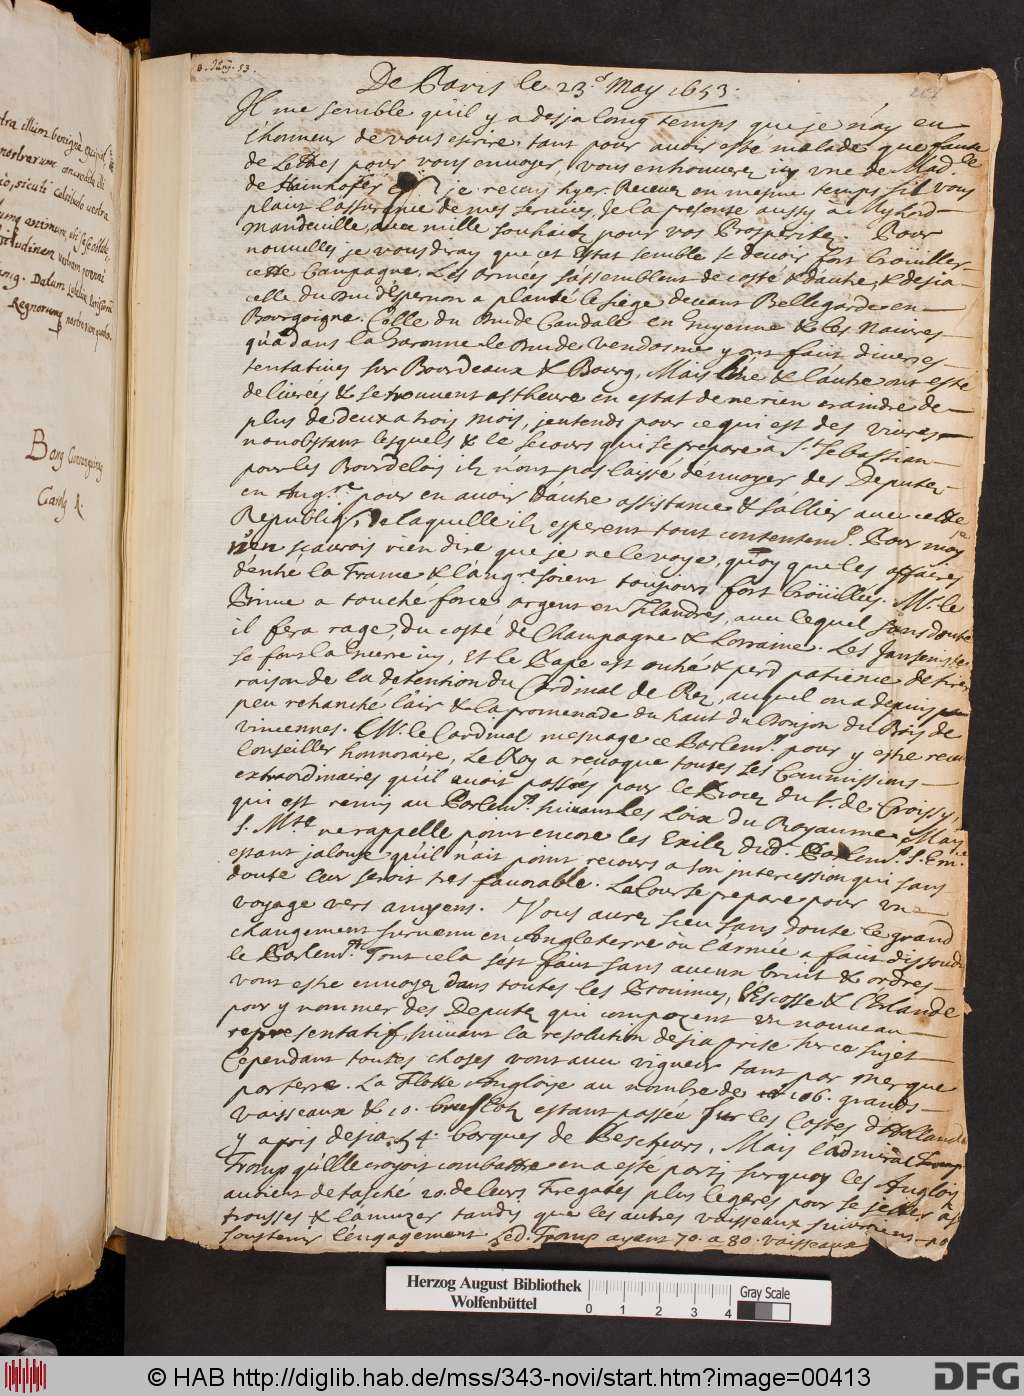 8. Jung. 53.
De Paris le 23.e May 1653.
Il me semble qu'il y a desja long temps que je n'ay eu
l'honneur de vous escrire, tant pour avoir esté malade que faute
de Lettres pour vous envoyer, vous en trouverez icy une de Mad.le
de Hainhofer je receu hyer. Recevez en mesme temps s'il vous
plaist l'assurance de mes services, Je la presente aussy a Mylord
Mandeville, avec mille souhaits pour vos Prosperitez. Pour
nouvelles je vous diray que cet Estat semble se devoir fort brouiller
cette Campagne, Les Armées s'assemblent de costé & d'autre, & desja
celle du Duc d'Espernon a planté le siege devant Bellegarde en
Bourgoigne. Celle du Duc de Candale en Guyenne & les Navires
qu'a dans la Garonne le Duc de Vendosme y ont faict diverses
tentatives sur Bourdeaux & Bourg, Mais l'une & l'autre ont esté
delivrées & se trouvent asstheure en estat de ne rien craindre de
plus de deux a trois mois, j'entends pour ce qui est des vivres
nonobstant lesquels & le secours qui se prepare a St Sebastian
pour les Bourdelois ilz n'ont pas laissé d'envoyer des Deputez
en Angre pour en avoir d'autre assistance & s'allier avec cette
Republiq, de laquelle ilz esperent tout contentemt. Pour moy je
n'en sçaurois rien dire que je ne le voye, quoy que les affaires
d'entre la France & l'Angre soient toujours fort brouillées. Mr. le
Prince a touché force argent en Flandres, avec lequel sans doute
il fera rage, du costé de Champagne & Lorraine. Les Jansenistes
se font la guerre icy, Et le Pape est outré & perd patience de tirer
raison de la detention du Cardinal de Rez, auquel on a depuis peu
peu retranché l'air & la promenade du haut du Donjon du Bois de
Vincennes. Mr. le Cardinal mesnage ce Parlemt. pour y estre receu
Conseiller honnoraire, Le Roy a revoqué toutes les Commissions
extraordinaires qu'il avoit passées pour le Procez du Sr. de Croissy,
qui est remis au Parlemt. suivant les Loix du Royaume, Mais
S. Mté ne rappelle point encore les Exilez dud. Parlemt. S. Em.ce
estant jalouse qu'il n'ait point recours a son intercession qui sans
doute leur seroit tres favorable. La Cour se prepare pour un
voyage vers Amyens. Vous aurez sceu sans doute le grand
changement survenu en Angleterre où l'armée a faict dissoudre
le Parlemt. Tout cela s'est faict sans aucun bruit & ordres
vont estre envoyez dans toutes les Provinces, l'Escosse & l'Irlande
pour y nommer des Deputez qui composent un nouveau
representatif, suivant la resolution desja prise sur ce sujet
Cependant toutes choses vont avec vigueur tant par mer que
par terre. La Flotte Angloise au nombre de 106. grands
vaisseaux & 10. bruslotz estant passée sur les Costes d'Hollande
y a pris desja 54. barques de Pescheurs, Mais l'admiral Tromp
Tromp qu'Elle croyoit combattre en a esté party surquoy les Anglois
avoient detasché 20. de leurs Fregates plus legeres pour se jetter
trousses & l'amuzer tandis que les autres vaisseaux
soustenir l'engagement Led. Tromp ayant 70. a 80. vaisseaux
Bong Consanguineus
Carolus R.
Herzog August Bibliothek
Wolfenbüttel
0 1 2 3 4
Gray Scale
© HAB http://diglib.hab.de/mss/343-novi/start.htm?image=00413
DFG